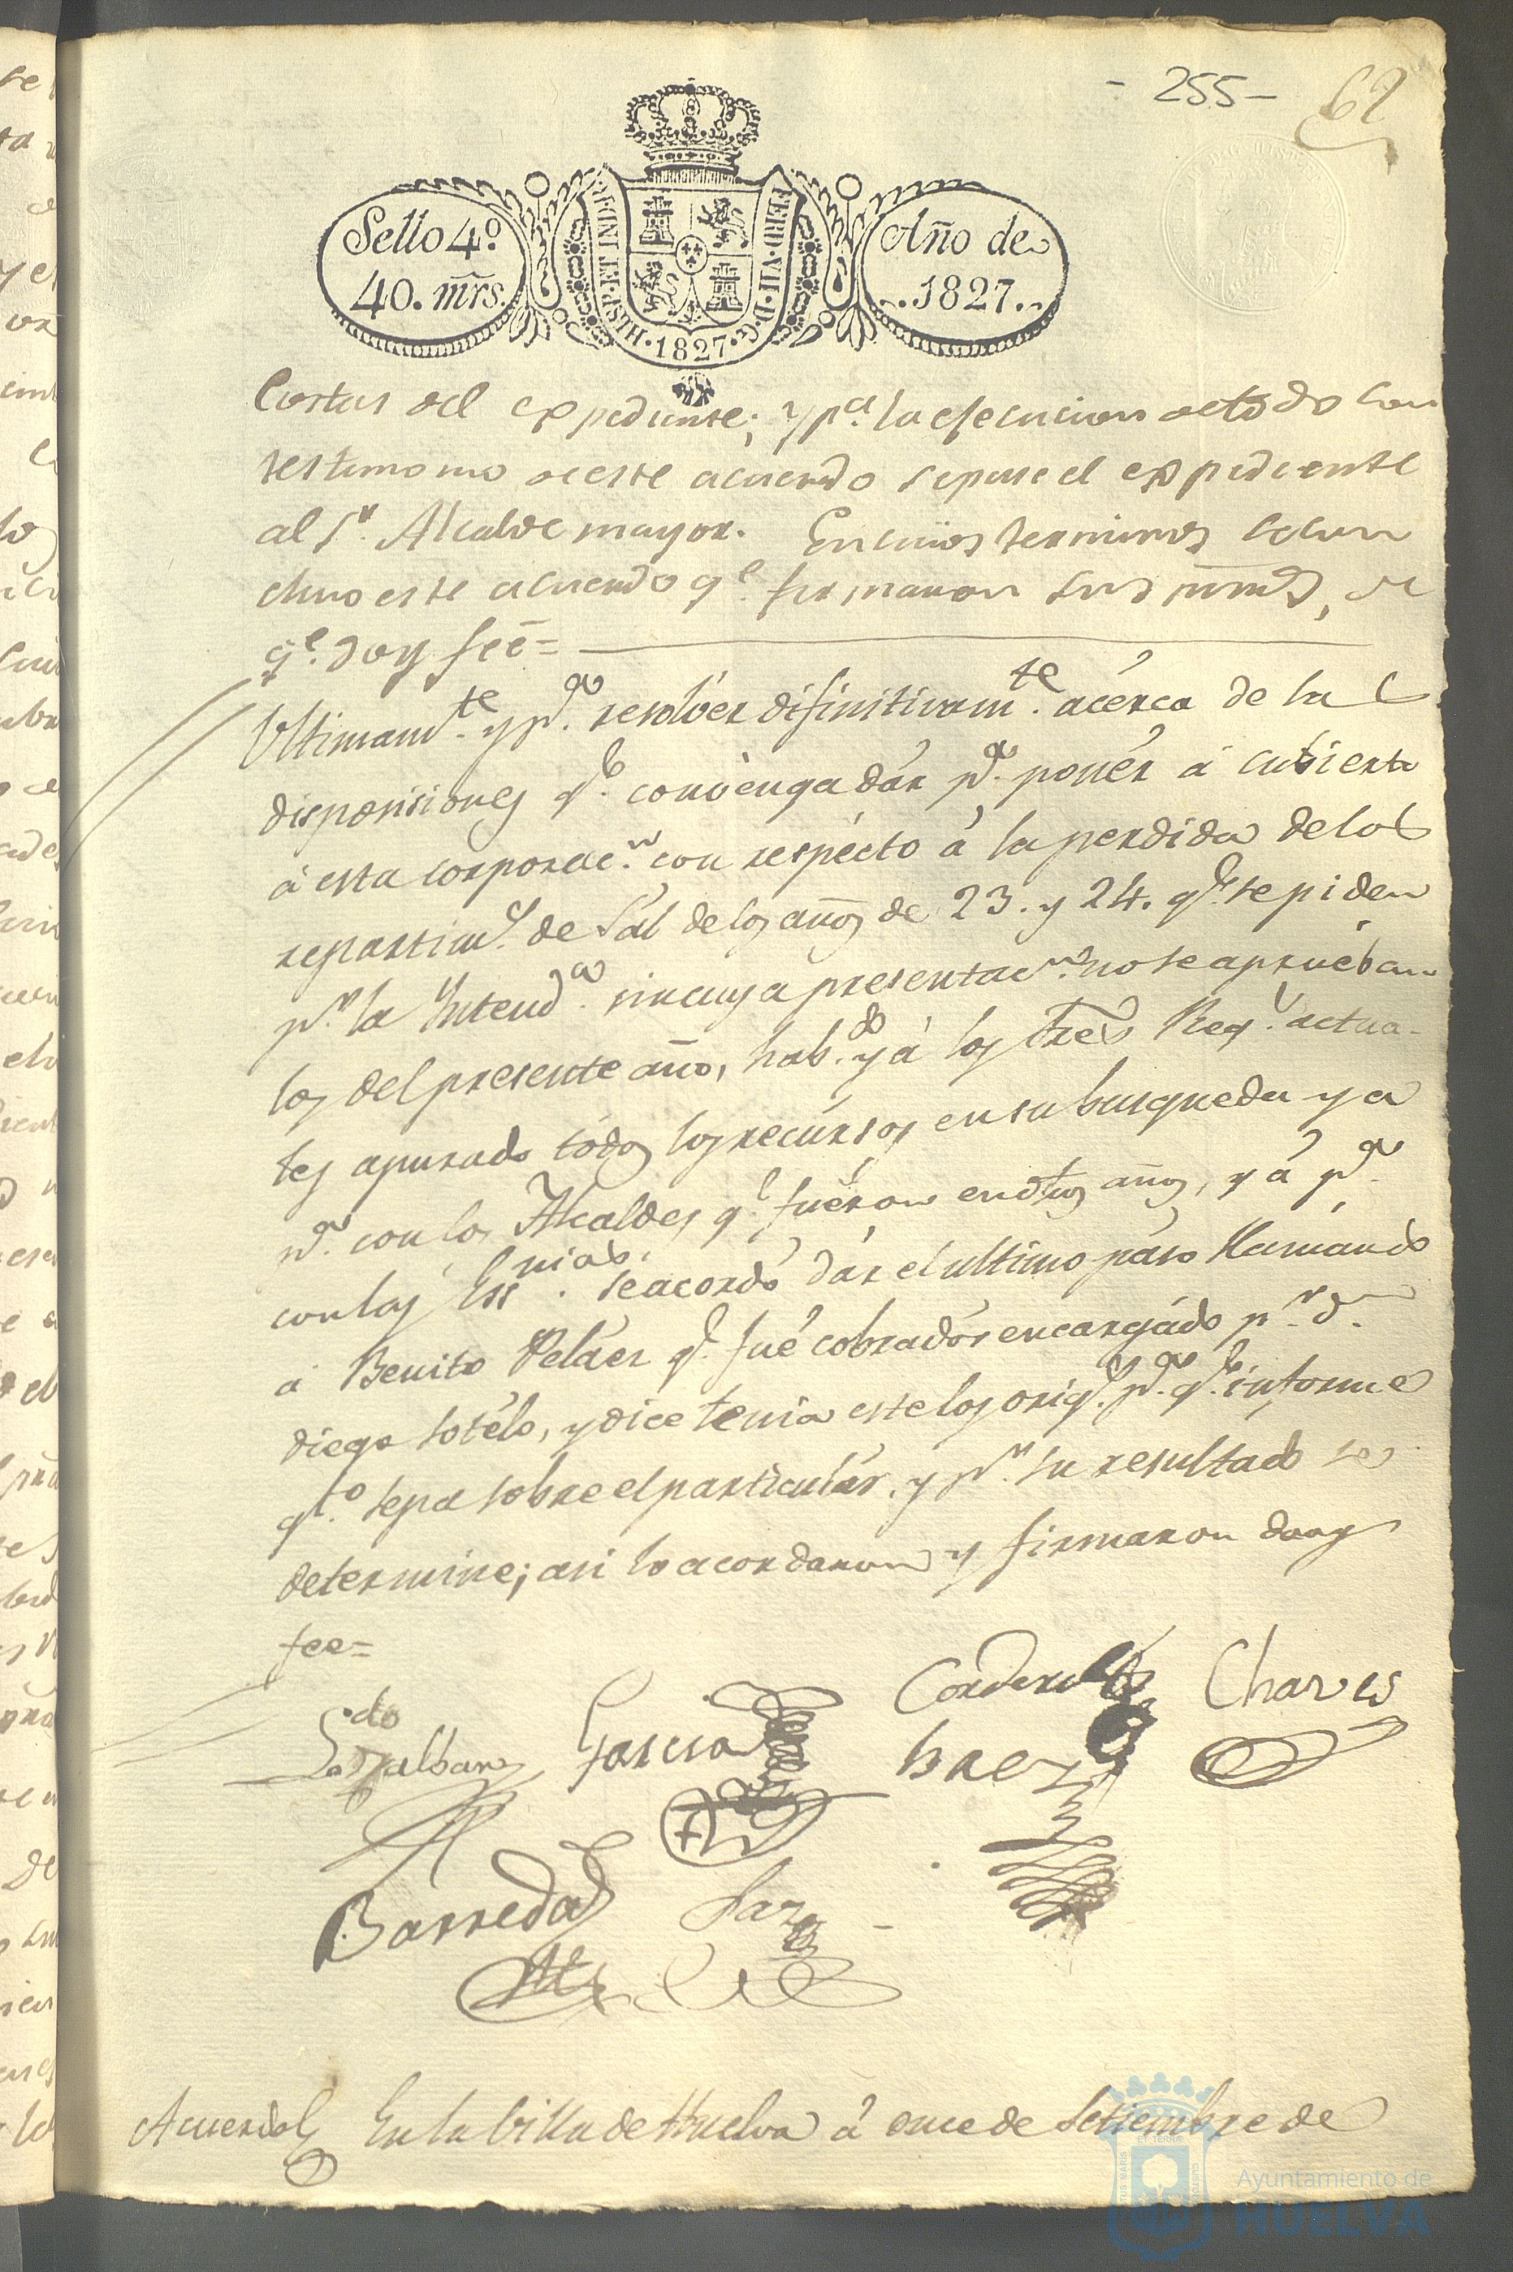 - 255 -
62
Sello 4º
40. mrs.
HISP. ET IND. R.
FERD. VII. D. G.
1827
Año de
1827.
Costas del expediente; y pª. la ejecucion de todo con
testimonio de este acuerdo se pase el expediente
al Sr. Alcalde mayor. En cuios terminos se con
cluio este acuerdo qe. firmaron sus mrds, de
qe. doy feé =
Ultimamte. y pª. resolvér difinitivamte. acérca de la
disposisiones qe. convenga dár pª. ponér á cubierto
á esta corporacn. con respécto á la perdida de los
repartims. de Sal de los años de 23. y 24. qe. se piden
pr. la Yntendª. sin cuya presentacn. no se apruéban
los del presente año, habdo. yá los tres Regs. actua-
les apurado todos los recúrsos en su busqueda ya
pª. con los Alcaldes qe. fuéron en dhos años, y á pª.
con los Essnias. se acordó dár el ultimo paso llamando
á Benito Peláez qe. fué cobradór encargádo pr. Dn.
Diego Sotélo, y dice tenia este los origs. pª. qe. informe
qto. sepa sobre el particulár, y pr. su resultádo se
determine; asi lo acordaron y firmaron doy
fee =
Ldo. Villalbar
Garcia
Cordero
Chaves
Baez
Barreda
Paz
Acuerdo En la Villa de Huelva á once de Setiembre de
Ayuntamiento de
HUELVA